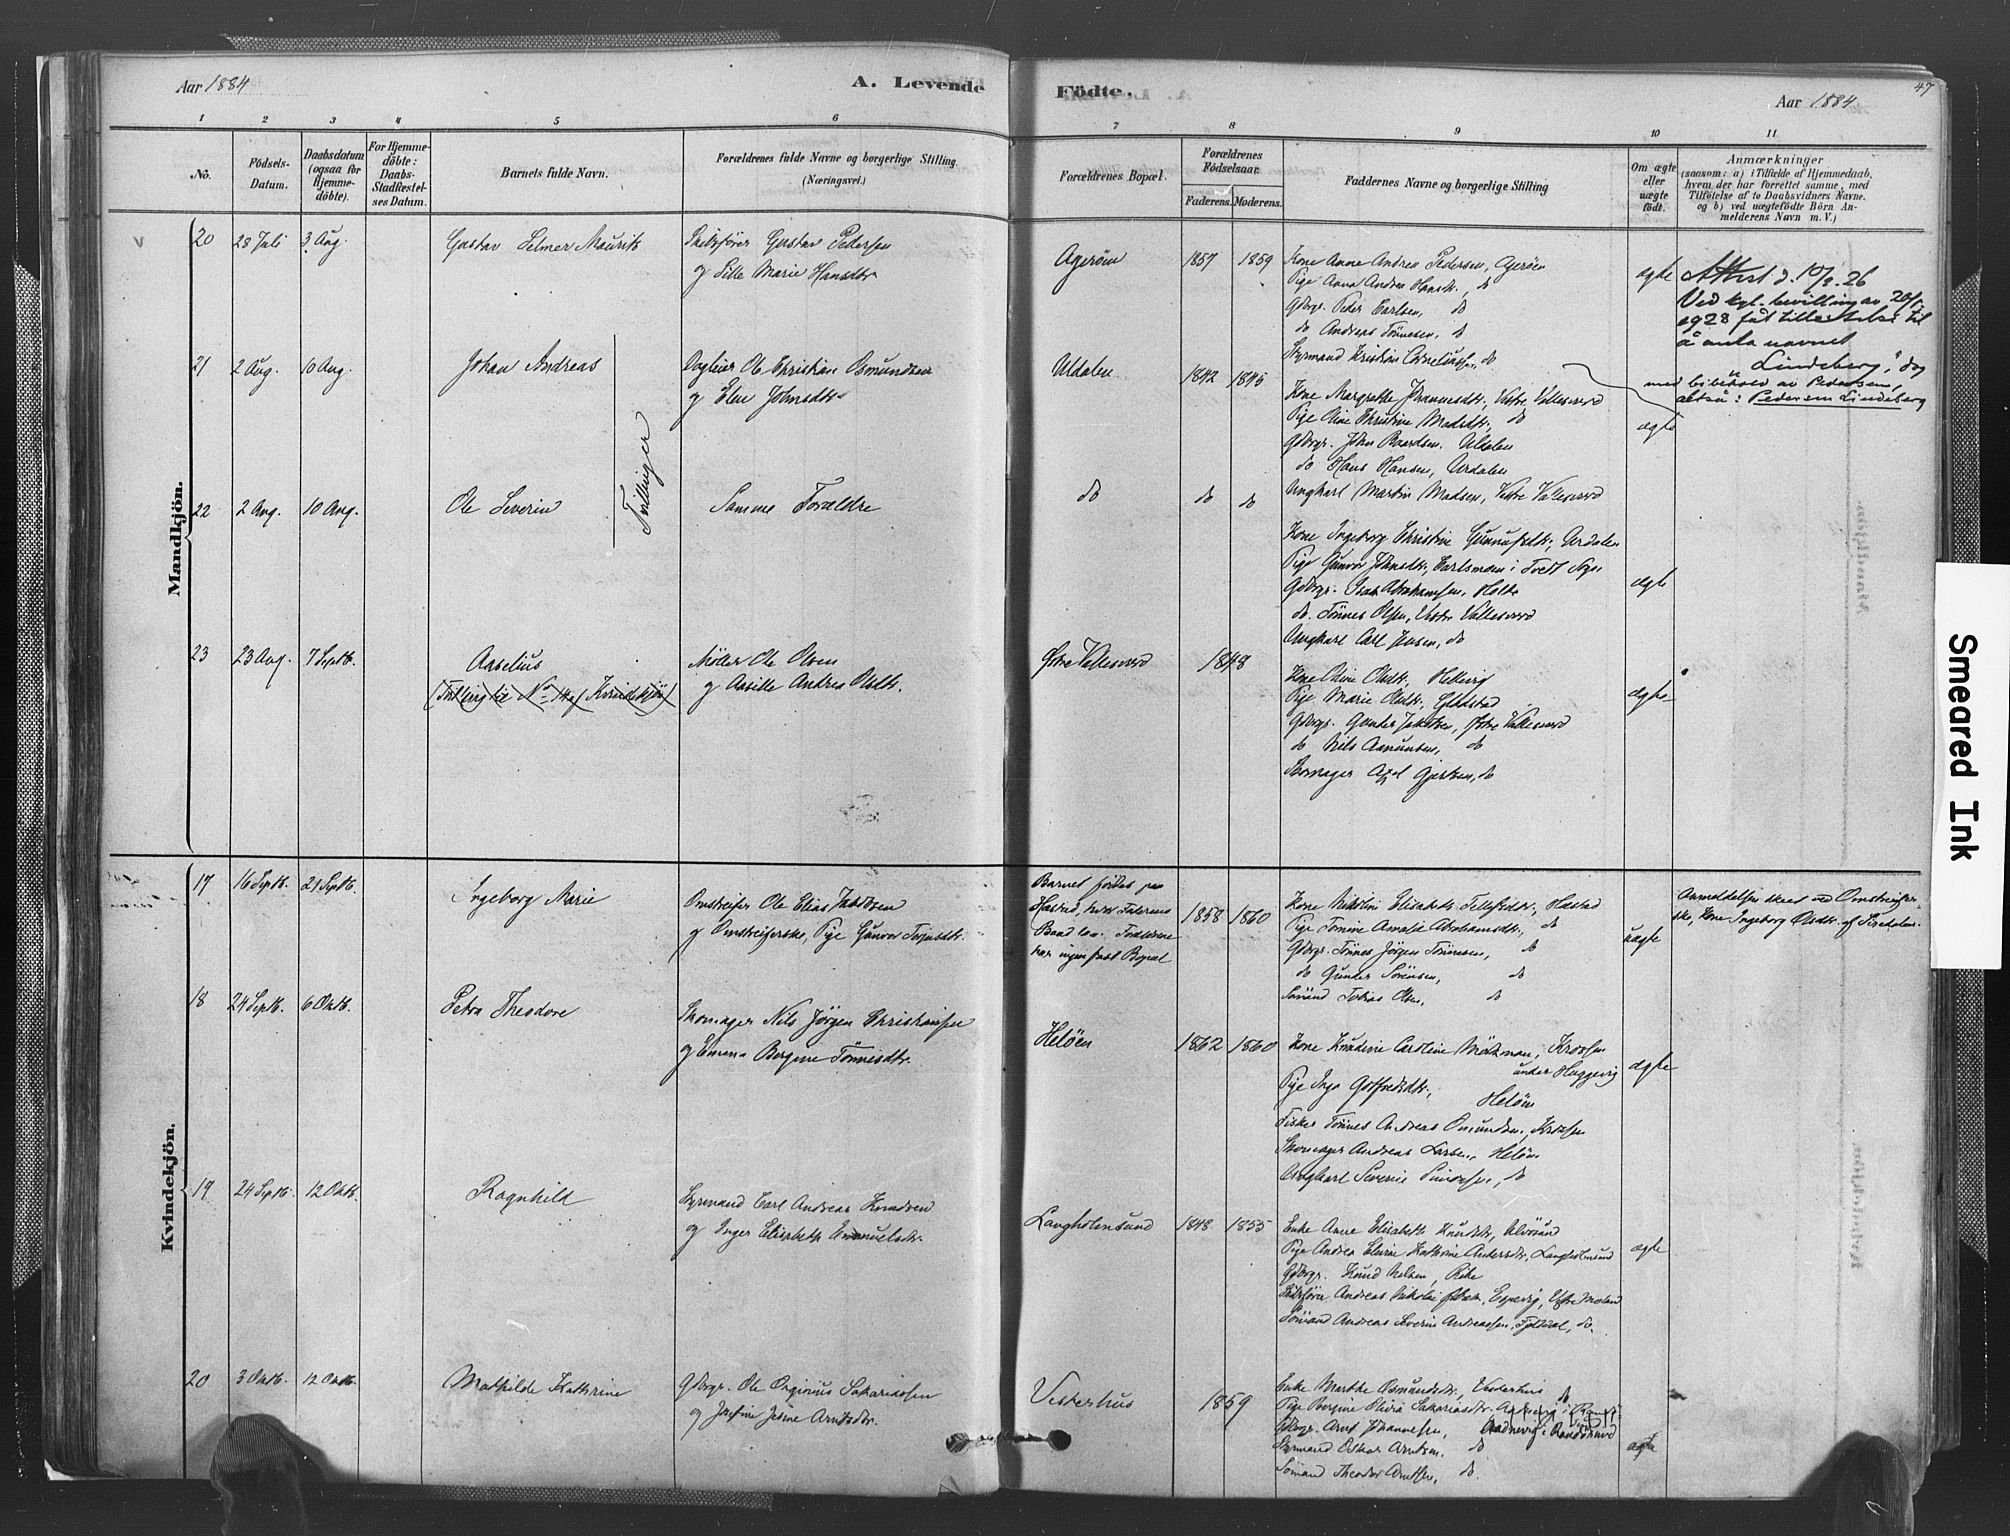 Aar 1884
A. Levende
Födte.
Aar 1884
47
1 2 3 4 5 6 7 8 9 10 11
No.
Födsels-
Datum.
Daabsdatum
(ogsaa for
Hjemme-
döbte).
For Hjemme-
döbte:
Daabs-
Stadfæstel-
ses Datum.
Barnets fulde Navn.
Forældrenes fulde Navne og borgerlige Stilling.
(Næringsvei.)
Forældrenes Bopæl.
Forældrenes
Födselsaar.
Faderens. Moderens.
Faddernes Navne og borgerlige Stilling
Om ægte
eller
uægte
födt.
Anmærkninger
(saasom: a) i Tilfælde af Hjemmedaab,
hvem der har forrettet samme, med
Tilföielse af to Daabsvidners Navne.
og b) ved uægtefödte Börn An-
melderens Navn m. V.)
Mandkjön.
20 28 Juli 3 Aug. Gustav Selmer Maurits
Skibsfører Gustav Pedersen
og Sille Marie Hansdtr
Agerøen 1857 1859
Kone Anne Andrea Pedersen, Agerøen
Pige Anna Andrea Hansdtr., do
Gdbrgr. Peder Carlsen, do
do Andreas Tönnesen, do
Styrmand Kristian Corneliussen, do
ægte
Attest d. 10/2. 26
Ved kgl. bevilling av 20/1
1928 fåt tillatelse til
å anta navnet
"Lindeberg", dog
med bibehold av Pedersen,
altså: Pedersen Lindeberg
21 2 Aug. 10 Aug. Johan Andreas
Tvillinger
Daglejer Ole Christian Osmundsen
og Elen Johnsdtr
Urdalen 1842 1845
Kone Margrethe Johannesdtr., Vestre Vallesværd
Pige Oline Christine Madsdtr., do
Gdbrgr. John Baardsen, Urdalen
do Hans Hansen, Urdalen
Ungkarl Martin Madsen, Vestre Vallesværd
ægte
22 2 Aug. 10 Aug. Ole Severin
Samme Forældre
do do do
Kone Ingeborg Christine Gunnufsdtr., Urdalen
Pige Gunvor Johnsdtr., Carlsmoen i Tveit Sogn
Gdbrgr. Isak Abrahamsen, Holte
do. Tönnes Olsen, Vestre Vallesværd
Ungkarl Carl Jensen, do
ægte
23 23 Aug. 7 Septb. Aaselius
(Tvilling til No 14 af Kvindekjön)
Møller Ole Olsen
og Aasille Andrea Olsdtr.
Østre Vallesværd 1848
Kone Oline Olsdtr., Hellevig
Pige Marie Olsdtr., Gladstad
Gdbrgr. Gunder Jakobsen, Østre Vallesværd
do Nils Aanunsen, do
Skomager Axel Gjertsen, do
ægte
Kvindekjön.
17 16 Septb. 21 Septb. Ingeborg Marie
Omstreifer Ole Elias Jakobsen
og Omstreiferske, Pige Gunvor Terjesdtr.
Barnet fødtes paa
Hæstad, hvor Faderens
Baad laa. Forældrene
har ingen fast Bopæl
1858 1860
Kone Nikoline Elisabeth Tellefsdtr., Hæstad
Pige Tomine Amalie Abrahamsdtr., do
Gdbrgr. Tönnes Jörgen Tönnesen, do
do Gunder Sörensen, do
Sømand Tobias Olsen, do
uægte
Anmeldelsen skeet ved Omstreifer-
ske, Kone Ingeborg Olsdtr. af Siredalen.
18 24 Septb. 6 Oktb. Petra Theodore
Skomager Nils Jörgen Christiansen
og Emma Bergine Tönnesdtr.
Helöen 1862 1860
Kone Knudine Caroline Mörkman, Krossen
under Haggevig
Pige Inga Gotfredsdtr., Helöen
Fisker Tönnes Andreas Osmundsen, Krossen
Skomager Andreas Larsen, Helöen
Ungkarl Severin Simonsen, do
ægte
19 24 Septb. 12 Oktb. Ragnhild
Styrmand Carl Andreas Knudsen
og Inger Elisabeth Emanuelsdtr.
Langholmsund 1848 1855
Enke Anne Elisabeth Knudsdtr., Ulvøsund
Pige Andrea Elvine Kathrine Andersdtr., Langholmsund
Gdbrgr. Knud Nelsen, Rike
Skibsfører Andreas Nikolai, Espevig, Vestre Moland
Sømand Andreas Severin Andreassen, do.
ægte
20 3 Oktb. 12 Oktb. Mathilde Kathrine
Gdbrgr. Ole Orginius Sakariassen
og Josefine Jesine Arntsdtr.
Vesterhus 1859
Enke Marthe Osmundsdtr., Vesterhus
Pige Bergine Olivia Sakariasdtr., do
Gdbrgr. Arnt Johannesen, Aadnevig i Randösund
Styrmand Oskar Arntsen, do
Sømand Theodor Arntsen, do.
ægte
Smeared Ink